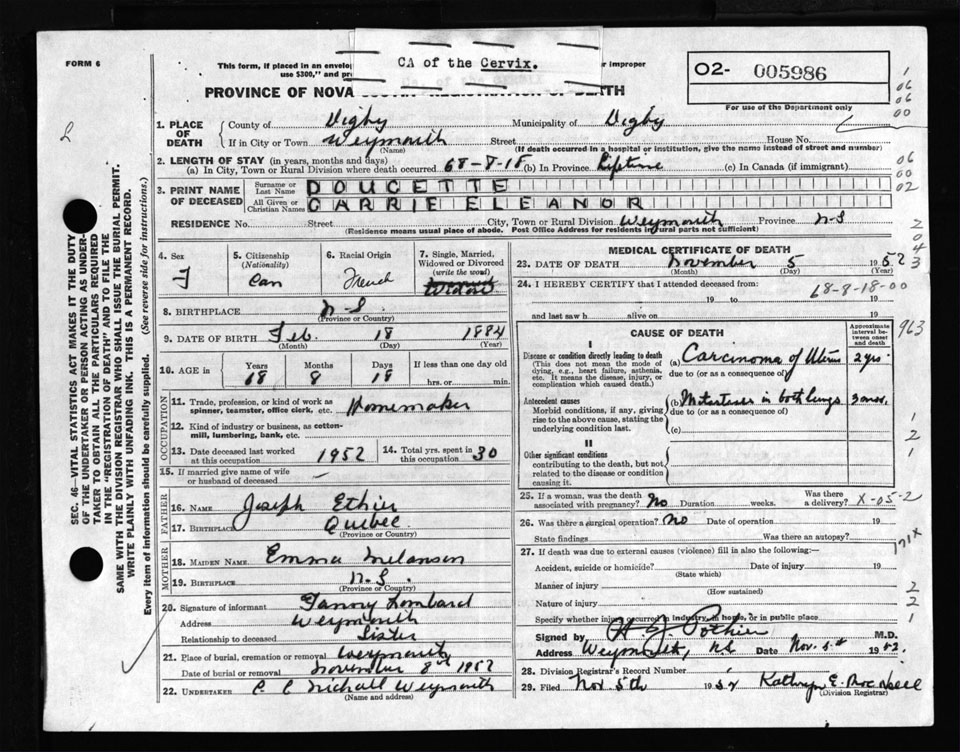 FORM 6
This form, if placed in an envelop
or improper
use $300," and pr
CA of the Cervix.
O2- 005986
For use of the Department only
PROVINCE OF NOVA
REGISTRATION OF DEATH
1. PLACE OF DEATH
County of Digby Municipality of Digby
If in City or Town Weymouth Street House No.
(Name) (If death occurred in a hospital or institution, give the name instead of street and number)
2. LENGTH OF STAY (in years, months and days)
(a) In City, Town or Rural Division where death occurred 68-8-18 (b) In Province Lifetime (c) In Canada (if immigrant)
3. PRINT NAME OF DECEASED
Surname or Last Name DOUCETTE
All Given or Christian Names CARRIE ELEANOR
RESIDENCE No. Street City, Town or Rural Division Weymouth Province N-S
(Residence means usual place of abode. Post Office Address for residents in rural parts not sufficient)
SEC. 46—VITAL STATISTICS ACT MAKES IT THE DUTY
OF THE UNDERTAKER OR PERSON ACTING AS UNDER-
TAKER TO OBTAIN ALL THE PARTICULARS REQUIRED
IN THE "REGISTRATION OF DEATH" AND TO FILE THE
SAME WITH THE DIVISION REGISTRAR WHO SHALL ISSUE THE BURIAL PERMIT.
WRITE PLAINLY WITH UNFADING INK. THIS IS A PERMANENT RECORD.
Every item of information should be carefully supplied. (See reverse side for instructions.)
4. Sex
F
5. Citizenship (Nationality)
Can
6. Racial Origin
French
7. Single, Married, Widowed or Divorced (write the word)
8. BIRTHPLACE N-S
(Province or Country)
9. DATE OF BIRTH Feb. 18 1884
(Month) (Day) (Year)
10. AGE in Years Months Days If less than one day old
68 8 18 hrs. or min.
OCCUPATION
11. Trade, profession, or kind of work as spinner, teamster, office clerk, etc. Homemaker
12. Kind of industry or business, as cotton-mill, lumbering, bank, etc.
13. Date deceased last worked at this occupation 1952
14. Total yrs. spent in this occupation 30
15. If married give name of wife or husband of deceased
FATHER
16. NAME Joseph Ethier
17. BIRTHPLACE Quebec
(Province or Country)
MOTHER
18. MAIDEN NAME Emma Melanson
19. BIRTHPLACE N.S.
(Province or Country)
20. Signature of informant Fanny Lombard
Address Weymouth
Relationship to deceased Sister
21. Place of burial, cremation or removal Weymouth
Date of burial or removal November 8th 1952
22. UNDERTAKER Weymouth
(Name and address)
MEDICAL CERTIFICATE OF DEATH
23. DATE OF DEATH November 5 1952
(Month) (Day) (Year)
24. I HEREBY CERTIFY that I attended deceased from:
19 to 19
68-8-18-00
and last saw h alive on 19
CAUSE OF DEATH
Approximate interval between onset and death
I
Disease or condition directly leading to death
(This does not mean the mode of dying, e.g., heart failure, asthenia, etc. It means the disease, injury, or complication which caused death.)
(a) Carcinoma of Uterus 2 yrs.
due to (or as a consequence of)
Antecedent causes
Morbid conditions, if any, giving rise to the above cause, stating the underlying condition last.
(b) Metastases in both lungs 3 mos.
due to (or as a consequence of)
(c)
II
Other significant conditions
contributing to the death, but not related to the disease or condition causing it.
25. If a woman, was the death associated with pregnancy? No Duration weeks. Was there a delivery?
X-05-2
26. Was there a surgical operation? No Date of operation 19
State findings Was there an autopsy?
171X
27. If death was due to external causes (violence) fill in also the following:—
Accident, suicide or homicide? Date of injury 19
(State which)
Manner of injury
(How sustained)
Nature of injury
Specify whether injury occurred in industry, in home, or in public place
Signed by H J Pothier M.D.
Address Weymouth, N.S. Date Nov. 5th 1952.
28. Division Registrar's Record Number
29. Filed Nov. 5th 1952 Kathryn E.
(Division Registrar)
963